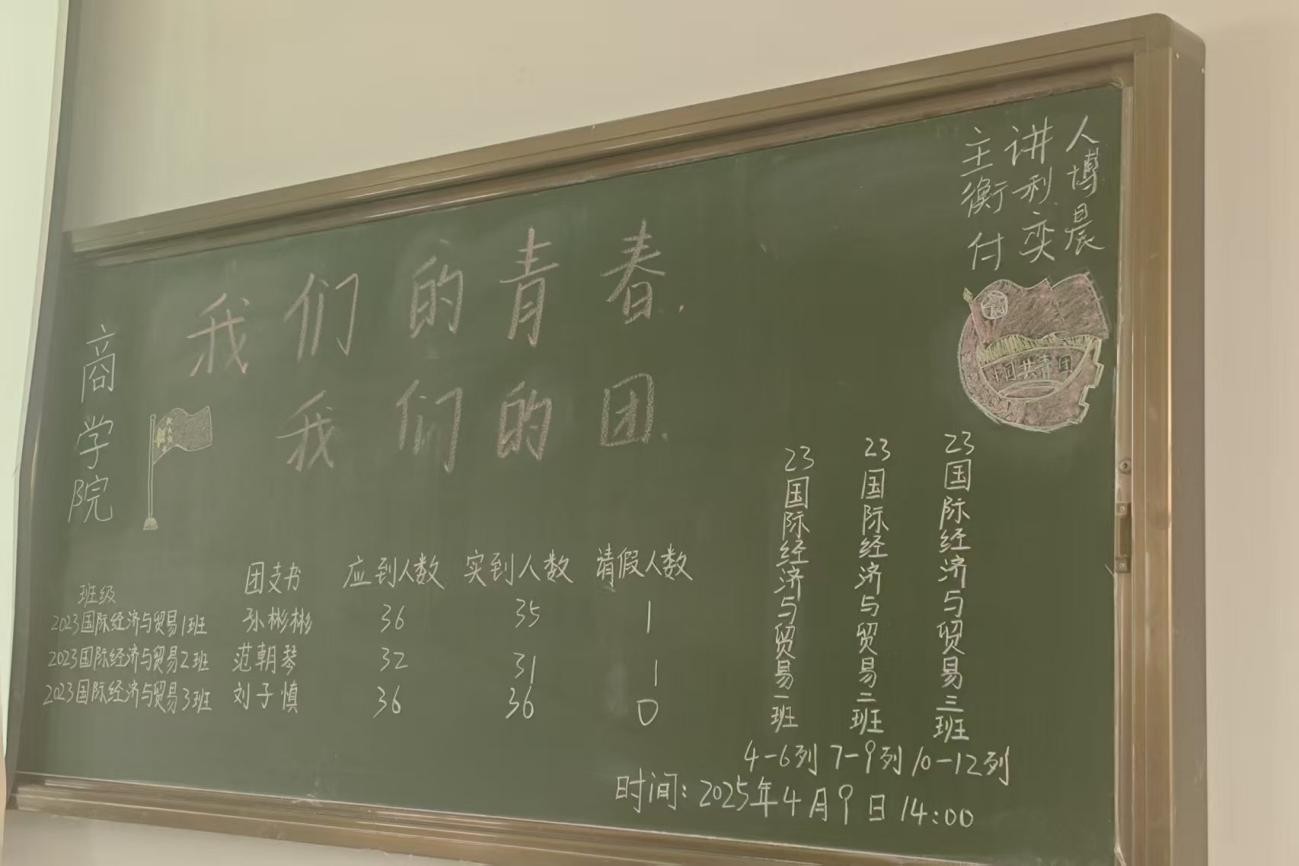 主讲人
衡利博
付奕晨
我们的青春,
我们的团.
商学院
中国共青团
班级 团支书 应到人数 实到人数 请假人数
2023国际经济与贸易1班 孙彬彬 36 35 1
2023国际经济与贸易2班 范朝琴 32 31 1
2023国际经济与贸易3班 刘子慎 36 36 0
23国际经济与贸易一班
23国际经济与贸易二班
23国际经济与贸易三班
4-6列 7-9列 10-12列
时间:2025年4月9日14:00